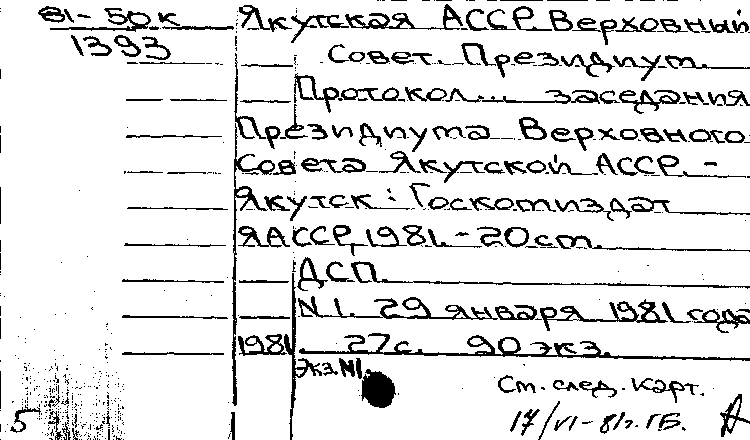 81-50к Якутская АССР. Верховный
1393 Совет. Президиум.
Протокол... заседания
Президиума Верховного
Совета Якутской АССР. -
Якутск: Госкомиздат
ЯАССР, 1981. - 20 см.
ДСП.
N 1. 29 января 1981 года
1981. 27с. 90 экз.
Экз. N1.
См. след. карт.
5 17/VI-81г. ГБ.